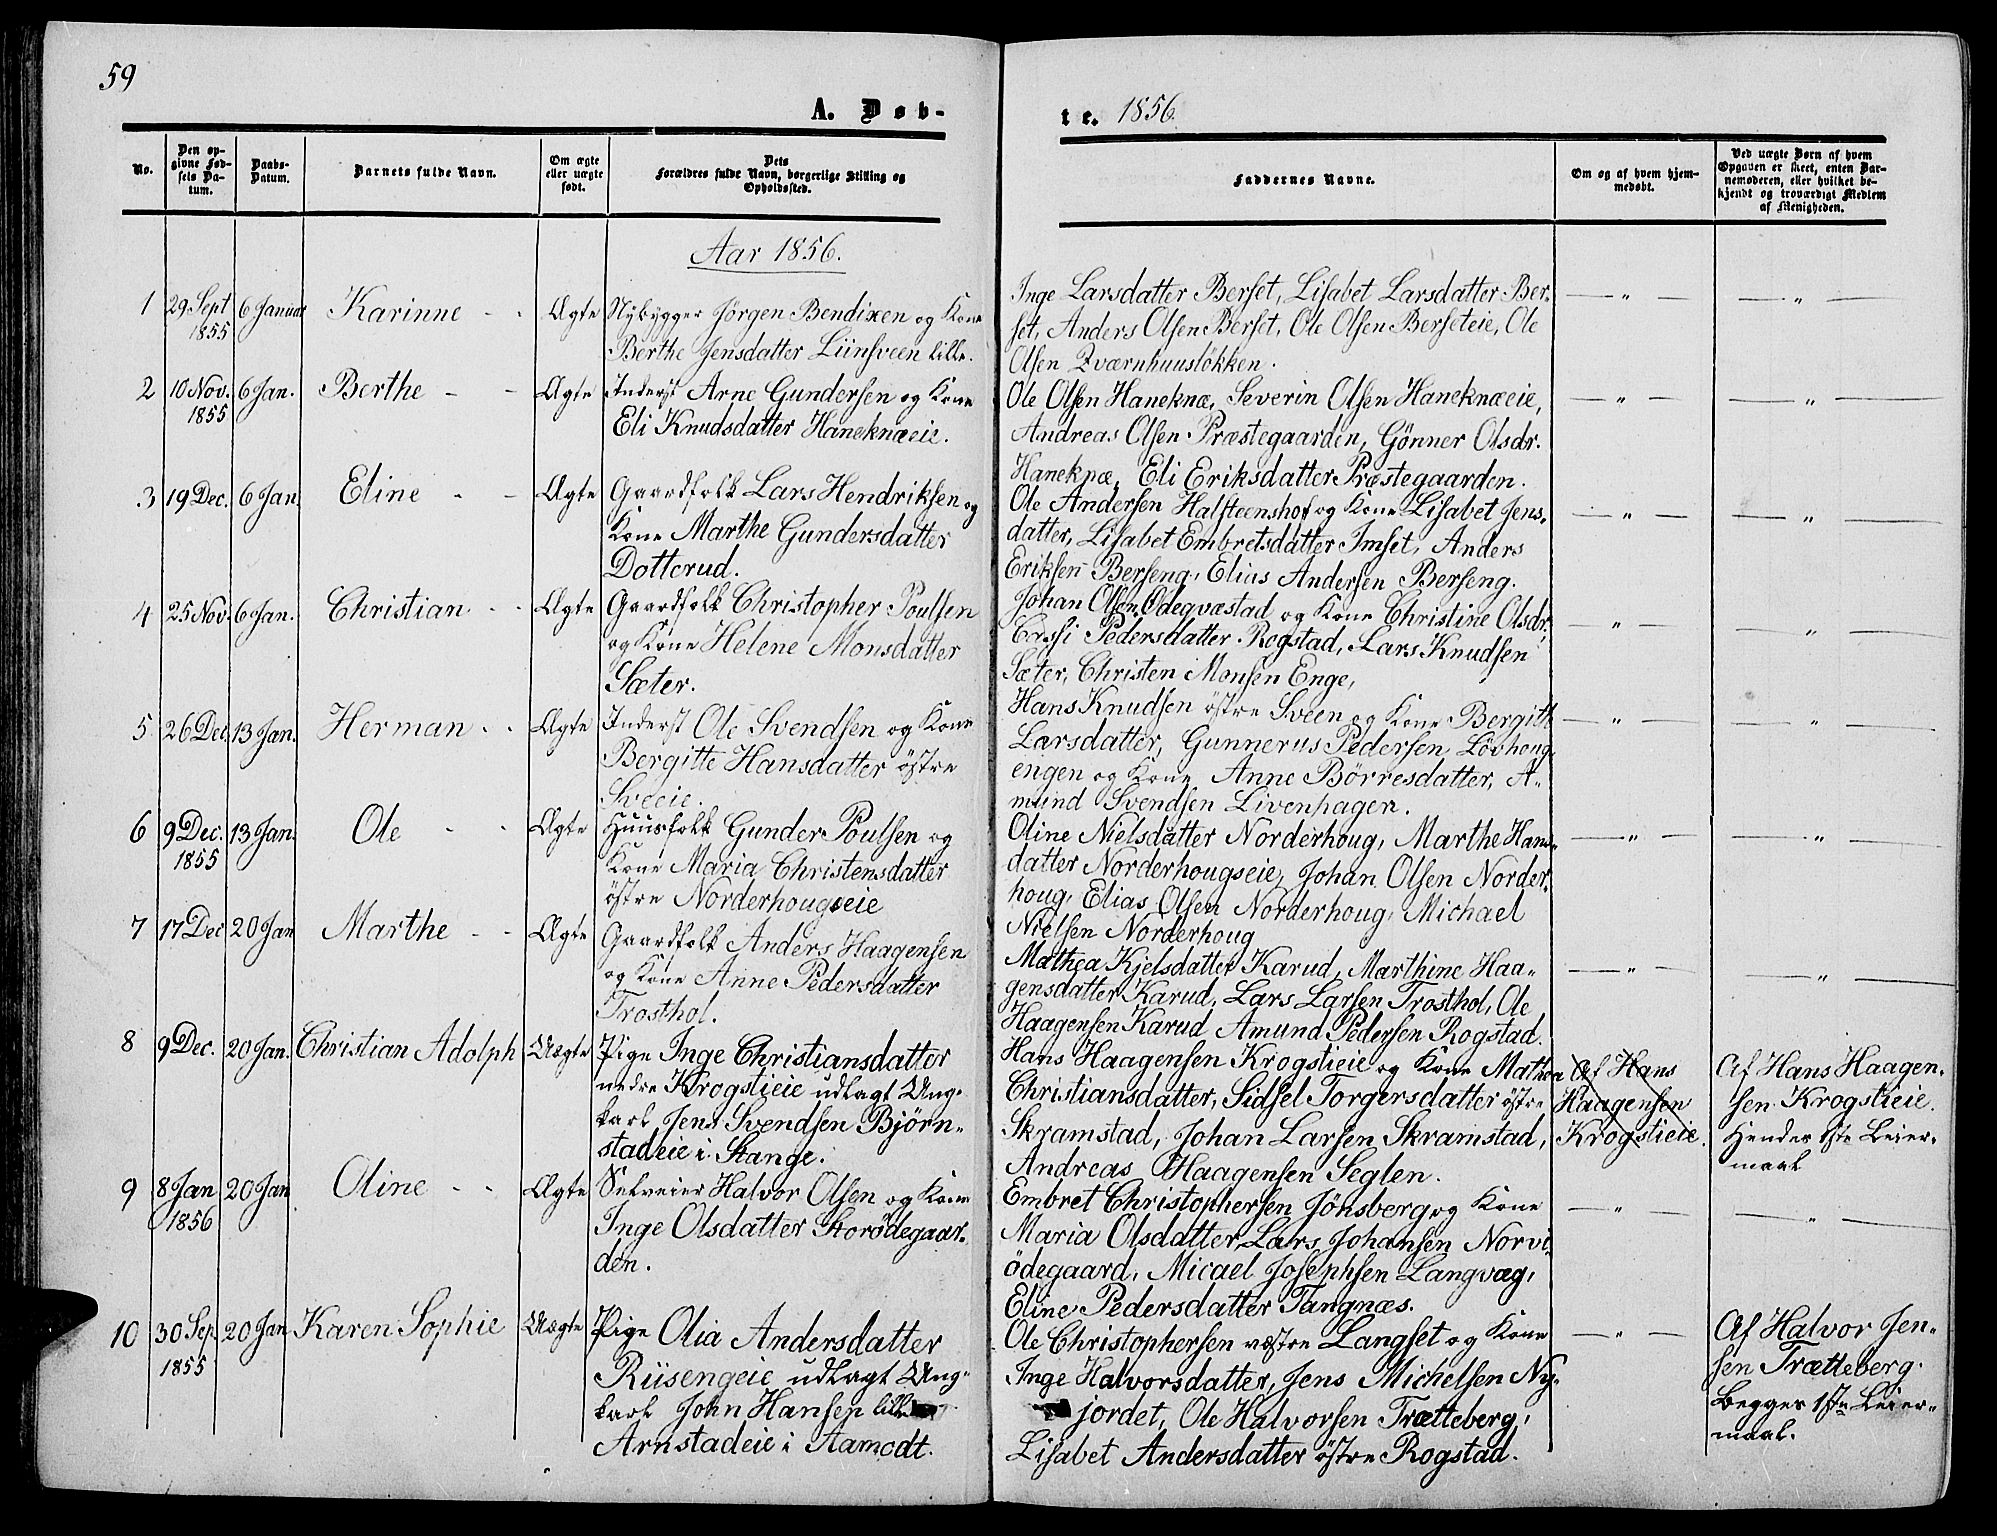 59
A. Døb-
te. 1856.
No.
Den op-
givne Fød-
sels Da-
tum.
Daabs-
Datum.
Barnets fulde Navn.
Om ægte
eller uægte
født.
Dets
Forældres fulde Navn, borgerlige Stilling og
Opholdssted.
Faddernes Navne.
Om og af hvem hjem-
medøbt.
Ved uægte Børn af hvem
Opgaven er skeet, enten Bar-
nemoderen, eller hvilket be-
kjendt og troværdigt Medlem
af Menigheden.
Aar 1856.
1 29 Sept 6 Januar Karinne - - Ægte Nybygger Jörgen Bendixen og Kone
1855 Berthe Jensdatter Liinsveen lille.
Inge Larsdatter Berset, Lisabet Larsdatter Ber- — " — — " —
set, Anders Olsen Berset, Ole Olsen Berseteie, Ole
Olsen Qværnhuuslökken.
2 10 Nov. 6 Jan. Berthe - - Ægte Inderst Arne Gundersen og Kone
1855 Eli Knudsdatter Haneknæeie.
Ole Olsen Haneknæ, Severin Olsen Haneknæeie, — " — — " —
Andreas Olsen Præstegaarden, Gönner Olsdr.
Haneknæ, Eli Eriksdatter Præstegaarden.
3 19 Dec. 6 Jan. Eline - - Ægte Gaardfolk Lars Hendriksen og
Kone Marthe Gundersdatter
Dotterud.
Ole Andersen Halsteenshof og Kone Lisabet Jens- — " — — " —
datter, Lisabet Embretsdatter Imset, Anders
Eriksen Berseng, Elias Andersen Berseng.
4 25 Nov. 6 Jan. Christian - - Ægte Gaardfolk Christopher Poulsen
og Kone Helene Monsdatter
Sæter.
Johan Olsen Ödegvæstad og Kone Christine Olsdr, — " — — " —
Pedersdatter Rogstad, Lars Knudsen
Sæter, Christen Monsen Enge,
5 26 Dec. 13 Jan. Herman - - Ægte Inderst Ole Svendsen og Kone
Bergitte Hansdatter östre
Sveeie.
Hans Knudsen östre Sveen og Kone Bergitte — " — — " —
Larsdatter, Gunnerus Pedersen Lövhoug-
engen og Kone Anne Börresdatter, A-
mund Svendsen Livenhagen.
6 9 Dec. 13 Jan. Ole - - Ægte Huusfolk Gunder Poulsen og
1855 Kone Maria Christensdatter
östre Norderhougseie
Oline Nielsdatter Norderhoug, Marthe Hans- — " — — " —
datter Norderhougseie, Johan Olsen Norder-
houg, Elias Olsen Norderhoug, Michael
Nielsen Norderhoug
7 17 Dec 20 Jan Marthe - - Ægte Gaardfolk Anders Haagensen
og Kone Anne Pedersdatter
Trosthol.
Mathea Kjelsdatter Karud, Marthine Haa- — " — — " —
gensdatter Karud, Lars Larsen Trosthol, Ole
Haagensen Karud Amund Pedersen Rogstad.
8 9 Dec. 20 Jan. Christian Adolph Uægte Pige Inge Christiansdatter
nedre Krogstieie udlagt Ung-
karl Jens Svendsen Björn-
stadeie i Stange.
Hans Haagensen Krogstieie og Kone Mathea Af Hans Af Hans Haagen-
Christiansdatter, Sidsel Torgersdatter östre Haagensen sen Krogstieie.
Skramstad, Johan Larsen Skramstad, Krogstieie. Hendes 1ste Leier-
Andreas Haagensen Seglen. maal
9 8 Jan 20 Jan Oline - - Ægte Selveier Halvor Olsen og Kone
1856 Inge Olsdatter Storödegaar-
den.
Embret Christophersen Jönsberg og Kone — " — — " —
Maria Olsdatter, Lars Johansen Norvi-
ödegaard, Micael Josephsen Langvæg,
Eline Pedersdatter Tangnæs.
10 30 Sep. 20 Jan Karen Sophie Uægte Pige Olia Andersdatter
1855 Riisengeie udlagt Ung-
karl John Hansen lille
Arnstadeie i Aamodt.
Ole Christophersen vestre Langset og Kone — " — Af Halvor Jen-
Inge Halvorsdatter, Jens Michelsen Ny- sen Trætteberg.
jordet, Ole Halvorsen Trætteberg, Begges 1ste Leier-
Lisabet Andersdatter östre Rogstad. maal.